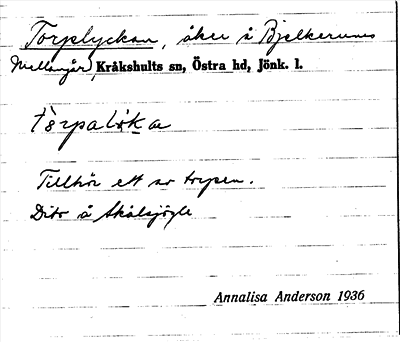 Torplyckan, åker å Bjelkerums
Mellangård, Kråkshults sn, Östra hd, Jönk. l.
Tillhör ett av torpen.
Dito å Skälsjögle
Annalisa Anderson 1936